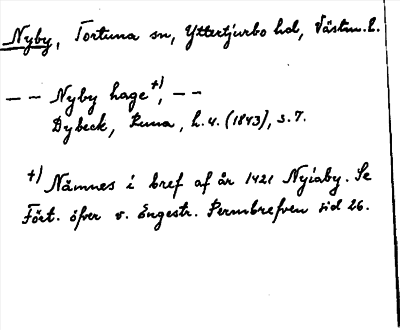 Nyby, Tortuna sn, Yttertjurbo hd, Västm. l.
– – Nyby hage +), – –
Dybeck, Runa, h. 4. (1843), s. 7.
+) Nämnes i bref af år 1421 Nyiaby. Se
Fört. öfver v. Engestr. Permbrefven sid 26.